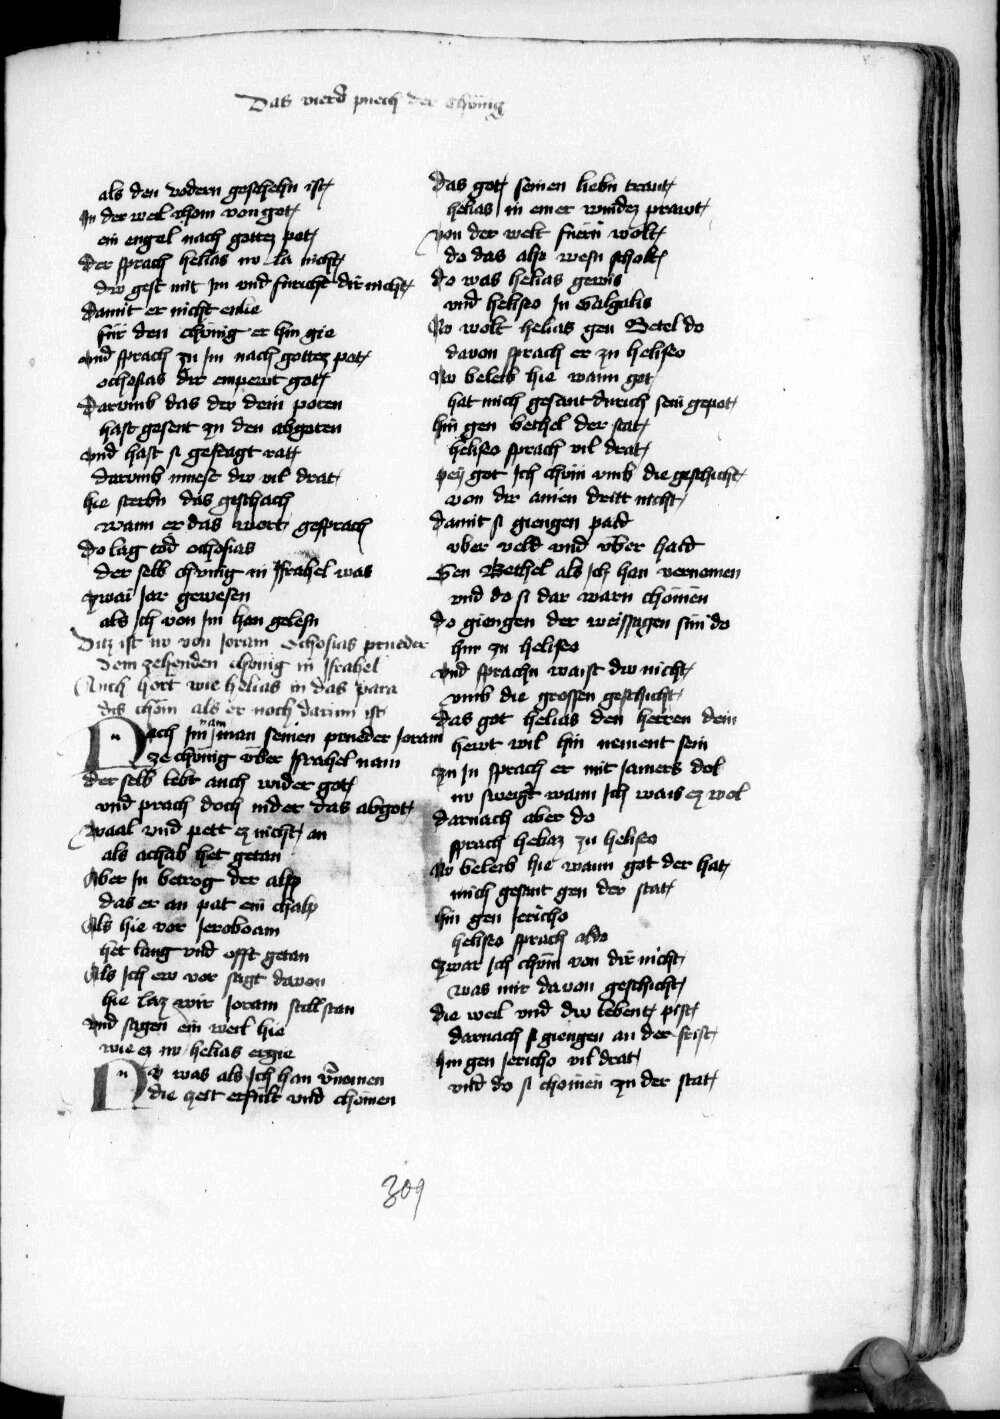 Das vierd puech der chönig
als den vodern geschehn ist
In der weil chom von got
ein engel nach gottez pot
Der sprach helias nv la nicht
dw gest mit Im vnd füricht dir nicht
Damit er nicht enlie
für den chönig er hin gie
vnd sprach zu Im nach gottez pot
ochosias dir empewt got
Darvmb das dw dein poten
hast gesent zu den abgoten
vnd hast si gefragt rat
darvmb muest dw vil drat
hie sterbn das geschach
wann er das wort gesprach
Do lag tod ochosias
der selb chönig in Israhel was
zwai Jar gewesen
als Ich von Im han gelesn
Ditz ist nv von Joram Ochosias prueder
Dem zehenden chönig in Israhel
Auch hort wie helias in das para
dis chom als er noch darinn ist
Nach Im nam man seinen prueder Joram
ze chönig vber Israhel nam
der selb lebt auch wider got
vnd prach doch nider das abgot
waal vnd pett ez nicht an
als achab het getan
Aber In betrog der alp
das er an pat ein chalp
Als hie vor Jeroboam
het lang vnd offt getan
Als Ich ew vor sagt davon
hie laz wir Joram still stan
vnd sagen ein weil hie
wie ez nv helias ergie
Nv was als Ich han v̄nomen
die zeit erfult vnd chömen
das got seinen liebn traut
helias in einer windez prawt
von der welt füern wolt
do das also wesn scholt
do was helias gewis
vnd heliseo In Galgalis
Nv wolt helias gen Betel do
davon sprach er zu heliseo
Nv beleib hie wann got
hat mich gesant durich sein gepot
hin gen bethel der stat
heliseo sprach vil drat
pey got Ich chüm vmb die geschicht
von dir ainen dritt nicht
damit si giengen pald
vber veld vnd vber hald
Gen Bethel als Ich han vernomen
vnd do si dar warn chömen
do giengen der weissagen sün do
hin zu heliseo
vnd sprachn waist dw nicht
vmb die grossen geschicht
das got helias den herren dein
hewt wil hin nement sein
zu In sprach er mit Jamers dol
nv sweigt wann Ich wais ez wol
darnach aber do
sprach heliaz zu heliseo
Nv beleib hie wann got der hat
mich gesant gen der stat
hin gen Jericho
heliseo sprach aldo
zwar Ich chüm von dir nicht
was mir davon geschicht
die weil vnd dw lebent pist
darnach si giengen an der frist
hin gen Jericho vil drat
vnd do si chömen zu der stat
309